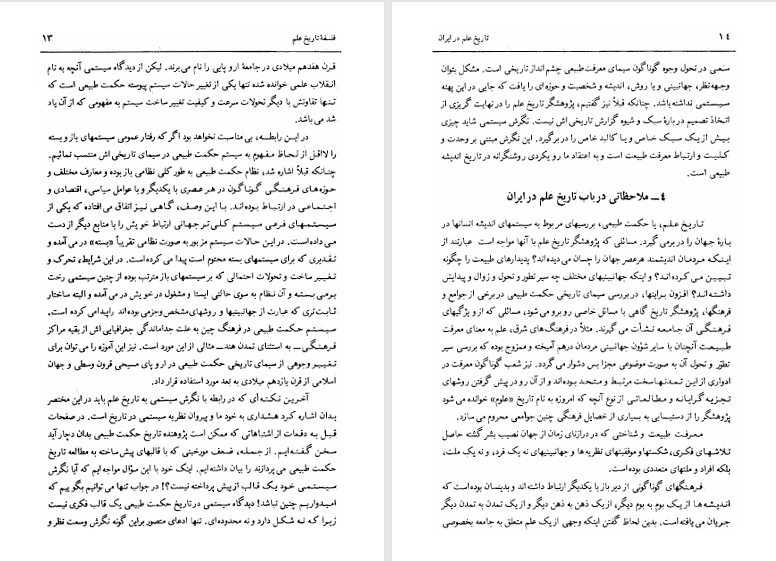 فلسفهٔ تاریخ علم
۱۳
قرن هفدهم میلادی در جامعهٔ اروپایی را نام می‌برند. لیکن از دیدگاه سیستمی آنچه به نام
انقلاب علمی خوانده شده تنها یکی از تغییر حالات سیستم پیوسته حکمت طبیعی است که
تنها تفاوتش با دیگر تحولات سرعت و کیفیت تغییر ساخت سیستم به مفهومی که از آن یاد
شد می‌باشد.
در این رابطه، بی مناسبت نخواهد بود اگر که رفتار عمومی سیستمهای باز و بسته
را لااقل از لحاظ مفهوم به سیستم حکمت طبیعی در سیمای تاریخی اش منتسب نمائیم.
چنانکه قبلاً اشاره شد، نظام حکمت طبیعی به طور کلی نظامی باز بوده و معارف مختلف و
حوزه‌های فرهنگی گوناگون در هر عصری با یکدیگر و با عوامل سیاسی، اقتصادی و
اجتماعی در ارتباط بوده‌اند. با این وصف، گاهی نیز اتفاق می‌افتاده که یکی از
سیستمهای فرعی سیستم کلی‌تر جهانی ارتباط خویش را با منابع دیگر از دست
می‌داده است. در این حالات سیستم مزبور به صورت نظامی تقریباً «بسته» در می‌آمده و
تقدیری که برای سیستمهای بسته محتوم است پیدا می کرده است. در این شرایط، تحرک و
تغییر ساخت و تحولات احتمالی که بر سیستمهای باز مترتب بوده از چنین سیستمی رخت
برمی بسته و آن نظام به سوی حالتی ایستا و مشغول در خویش در می آمده و البته ساختار
ثابت‌تری که عبارت از جهانبینیها و روشهای مشخص و جزمی بوده‌اند را پیدا می کرده است.
سیستم حکمت طبیعی در فرهنگ چین به علت جداماندگی جغرافیایی اش از بقیه مراکز
فرهنگی — به استثنای تمدن هند — مثالی از این مورد است. نیز این آموزه را می‌توان برای
تغییر وجوهی از سیمای تاریخی حکمت طبیعی در اروپای مسیحی قرون وسطی و جهان
اسلامی از قرن یازدهم میلادی به بعد مورد استفاده قرار داد.
آخرین نکته‌ای که در رابطه با نگرش سیستمی به تاریخ علم باید در این مختصر
بدان اشاره کرد هشداری به خود ما و پیروان نظریه سیستمی در تاریخ است. در صفحات
قبل به دفعات از اشتباهاتی که ممکن است پژوهنده تاریخ حکمت طبیعی بدان دچار آید
سخن گفته‌ایم. از جمله، ضعف مورخینی که با قالبهای پیش ساخته به مطالعه تاریخ
حکمت طبیعی می پردازند را بیان داشته‌ایم. اینک خود با این سؤال مواجه‌ایم که آیا نگرش
سیستمی خود یک قالب از پیش پرداخته نیست؟! در جواب تنها می توانیم بگوییم که
امیدواریم چنین نباشد! دیدگاه سیستمی در تاریخ حکمت طبیعی یک قالب فکری نیست
زیرا که نه شکل دارد و نه محدوده‌ای. تنها ادعای متصور بر این گونه نگرش وسعت نظر و
۱٤
تاریخ علم در ایران
سعی در تحول وجوه گوناگون سیمای معرفت طبیعی چشم‌انداز تاریخی است. مشکل بتوان
وجهه نظر، جهانبینی و یا روش، اندیشه و شخصیت و حوزه‌ای را یافت که جایی در این پهنه
سیستمی نداشته باشد. چنانکه قبلاً نیز گفتیم، پژوهشگر تاریخ علم را در نهایت گریزی از
اتخاذ تصمیم درباره سبک و شیوه گزارش تاریخی اش نیست. نگرش سیستمی شاید چیزی
بیش از یک سبک خاص و یا کالبد خاص را دربرگیرد. این نگرش مبتنی بر وحدت و
کلیت و ارتباط معرفت طبیعت است و به اعتقاد ما رویکردی روشنگرانه در تاریخ اندیشه
طبیعی است.
٤ـ ملاحظاتی در باب تاریخ علم در ایران
تاریخ علم، یا حکمت طبیعی، بررسیهای مربوط به سیستمهای اندیشه انسانها در
بارهٔ جهان را در برمی گیرد. مسائلی که پژوهشگر تاریخ علم با آنها مواجه است عبارتند از
اینکه مردمان اندیشمند هر عصر جهان را چسان می دیده‌اند؟ پدیدارهای طبیعت را چگونه
تبیین می کرده‌اند؟ و اینکه جهانبینیهای مختلف چه سیر تطور و تحول و زوال و پیدایش
داشته‌اند؟ افزون براینها، در بررسی سیمای تاریخی حکمت طبیعی در برخی از جوامع و
فرهنگها، پژوهشگر تاریخ گاهی با مسائل خاصی روبرو می شود، مسائلی که از ویژگیهای
فرهنگی آن جامعه نشأت می گیرند. مثلاً در فرهنگ های شرق، علم به معنای معرفت
طبیعت آنچنان با سایر شؤون جهانبینی مردمان درهم آمیخته و ممزوج بوده که بررسی سیر
تطور و تحول آن به صورت موضوعی مجزا بس دشوار می گردد. نیز شعب گوناگون معرفت در
ادواری از این تمدنها سخت مرتبط و متحد بوده‌اند و از آن رو در پیش گرفتن روشهای
تجزیه گرایانه و مطالعاتی از نوع آنچه که امروزه به نام تاریخ «علوم» خوانده می شود
پژوهشگر را از دستیابی به بسیاری از خصایل فرهنگی چنین جوامعی محروم می سازد.
معرفت طبیعت و شناختی که در درازنای زمان از جهان نصیب بشر گشته حاصل
تلاشهای فکری، شکستها و موفقیتهای نظریه ها و جهانبینیهای نه یک فرد، و نه یک ملت،
بلکه افراد و ملتهای متعددی بوده است.
فرهنگهای گوناگونی از دیر باز با یکدیگر ارتباط داشته اند و بدینسان بوده است که
اندیشه ها از یک بوم به بوم دیگر، از یک ذهن به ذهن دیگر و از یک تمدن به تمدن دیگر
جریان می‌یافته است. بدین لحاظ گفتن اینکه وجهی از یک علم متعلق به جامعه بخصوصی